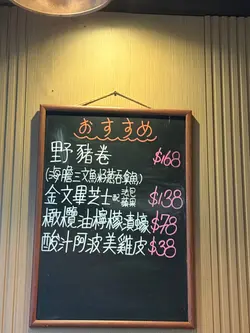 おすすめ
野豬卷 $168
(海膽三文魚籽蒜吞拿魚)
金文畢芝士配法包蘋果 $138
橄欖油檸檬漬蠔 $78
酸汁阿波美雞皮 $38